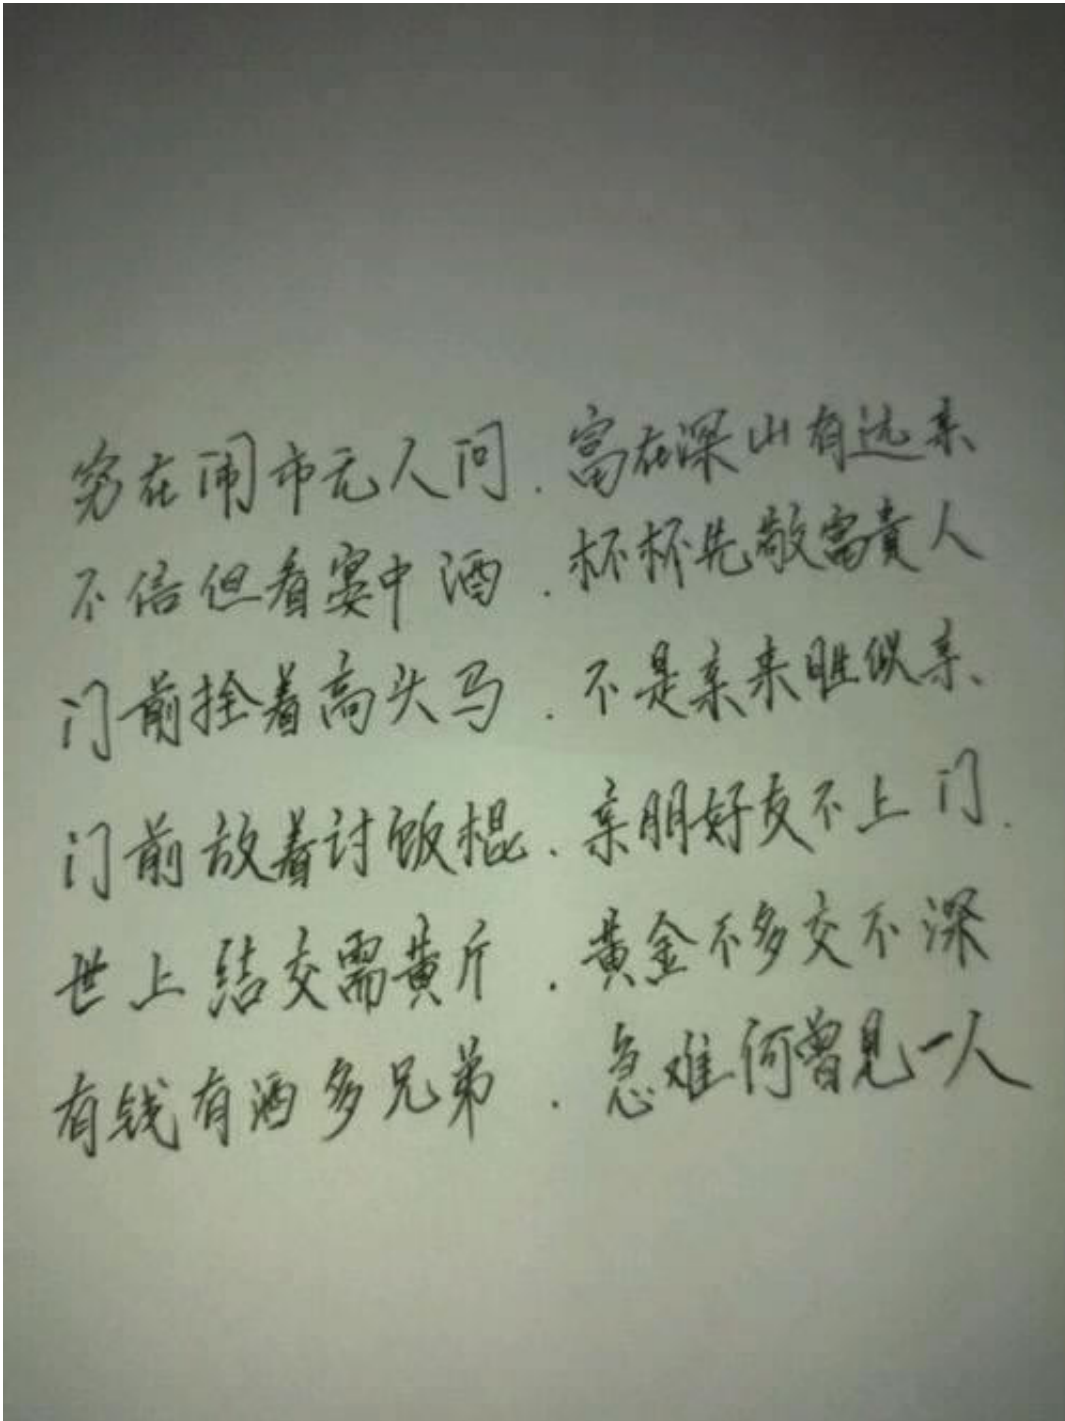 穷在闹市无人问.富在深山有远亲
不信但看宴中酒.杯杯先敬富贵人
门前拴着高头马.不是亲来胜似亲.
门前放着讨饭棍.亲朋好友不上门.
世上结交需黄斤.黄金不多交不深
有钱有酒多兄弟.急难何曾见一人